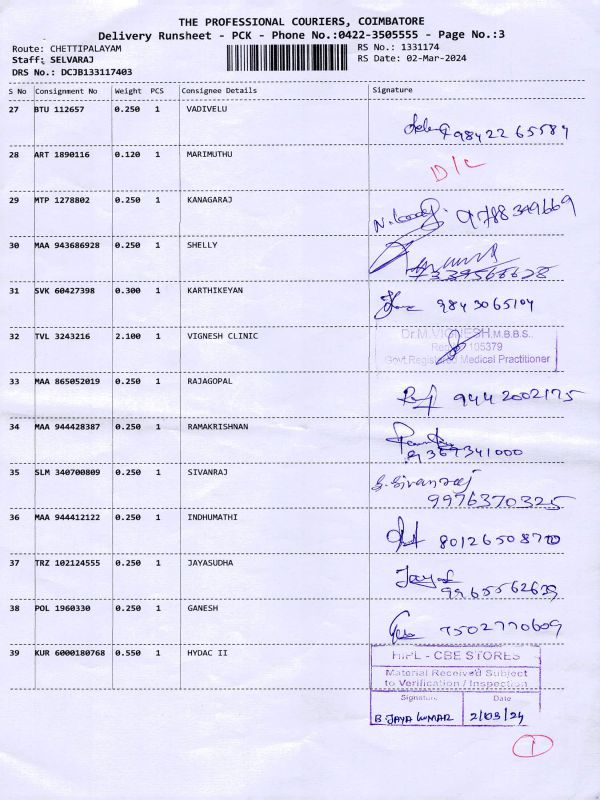 THE PROFESSIONAL COURIERS, COIMBATORE
Delivery Runsheet - PCK - Phone No.:0422-3505555 - Page No.:3
Route: CHETTIPALAYAM
RS No.: 1331174
Staff: SELVARAJ
RS Date: 02-Mar-2024
DRS No.: DCJB133117403
S No Consignment No Weight PCS Consignee Details Signature
27 BTU 112657 0.250 1 VADIVELU
9842265584
28 ART 1890116 0.120 1 MARIMUTHU
D/L
29 MTP 1278802 0.250 1 KANAGARAJ
9788349669
30 MAA 943686928 0.250 1 SHELLY
31 SVK 60427398 0.300 1 KARTHIKEYAN
9843065104
32 TVL 3243216 2.100 1 VIGNESH CLINIC
Dr.M.VIGNESH,M.B.B.S.,
105379
Govt.Registered Medical Practitioner
33 MAA 865052019 0.250 1 RAJAGOPAL
9442002175
34 MAA 944428387 0.250 1 RAMAKRISHNAN
9367341000
35 SLM 340700809 0.250 1 SIVANRAJ
S. Sivanraj
9976370325
36 MAA 944412122 0.250 1 INDHUMATHI
8012650870
37 TRZ 102124555 0.250 1 JAYASUDHA
9965562639
38 POL 1960330 0.250 1 GANESH
7502770609
39 KUR 6000180768 0.550 1 HYDAC II
HIPL - CBE STORES
Material Received Subject
to Verification / Inspection
Signature Date
B JAYA KUMAR 2/03/24
1